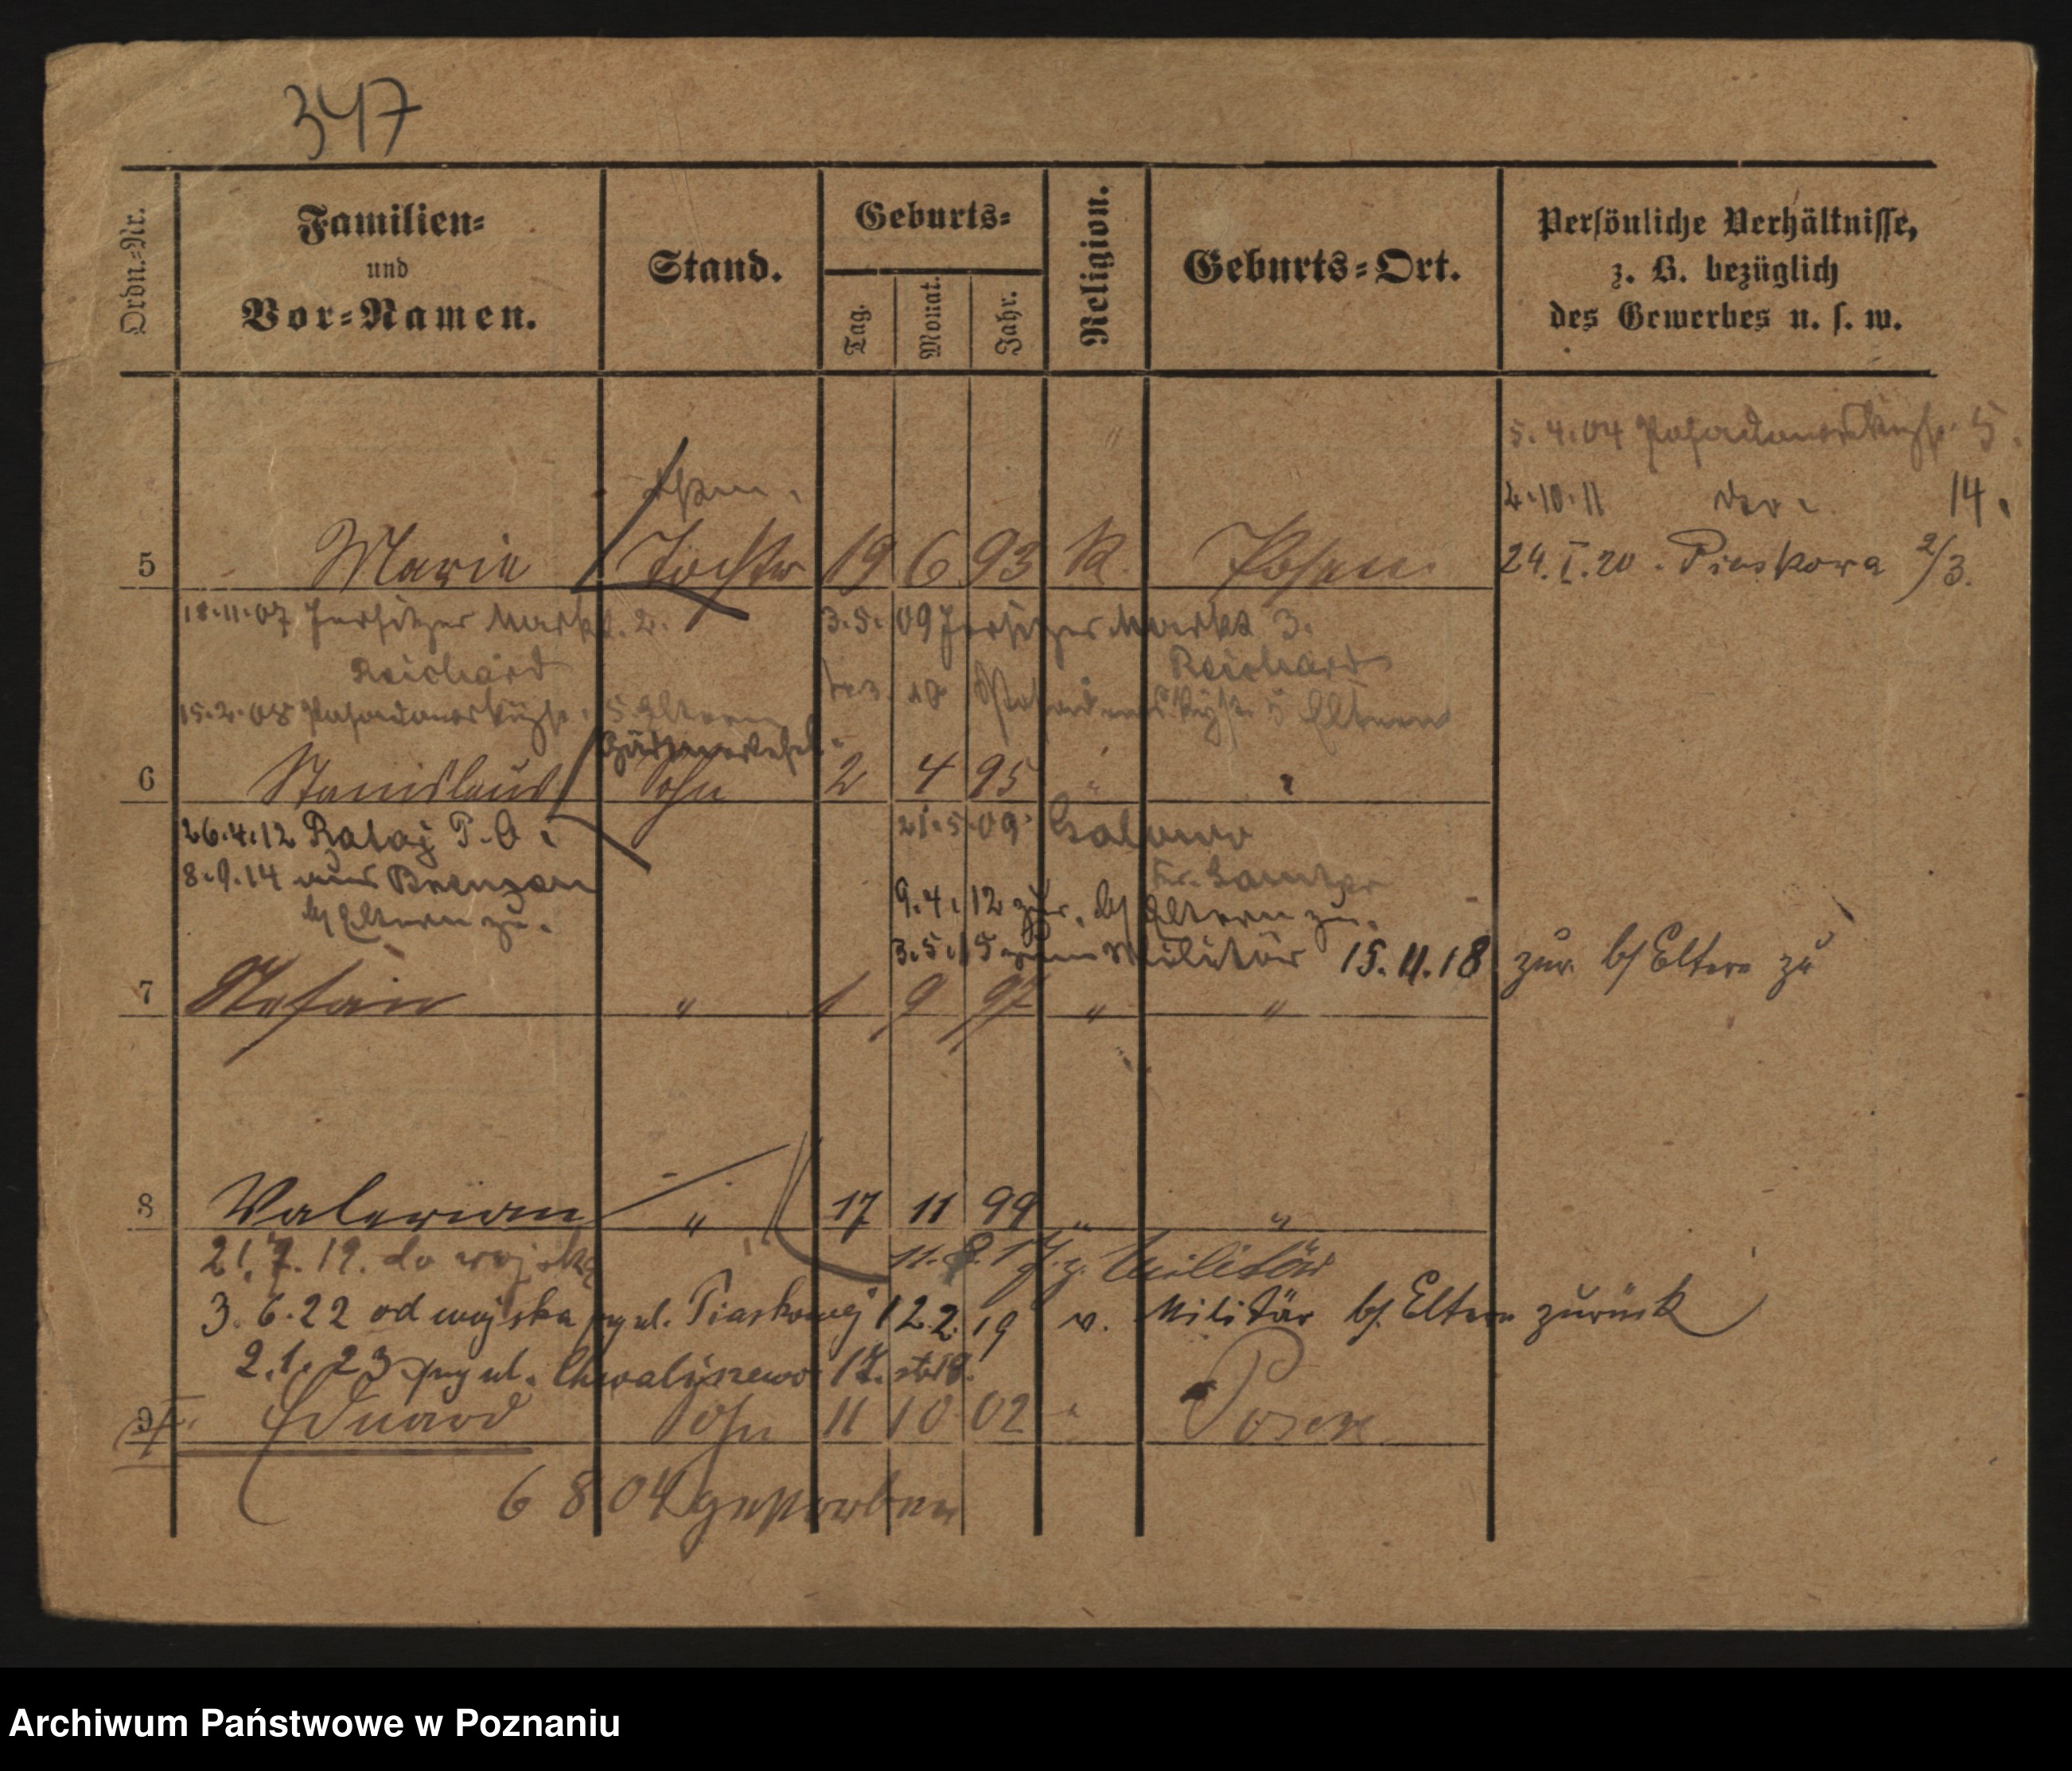 347
Ordn.-Nr.
Familien- und Vor-Namen.
Stand.
Geburts-
Tag. Monat. Jahr.
Religion.
Geburts-Ort.
Persönliche Verhältnisse, z. B. bezüglich des Gewerbes u. s. w.
5.4.04 5.
2.10.11 14.
5 Marie Tochter 19 6 93 K. Posen
24.I.20. Piaskowa 2/3.
18.11.07 Jersitzer Markt. 2. 3.5.09 Jersitzer Markt 3.
Reichard Reichard
15.2.08 5. Eltern 5 Eltern
6 Stanislaus Sohn 2 4 95 " "
26.4.12 Rataj P.O. 21.5.09
8.9.14 aus Kr. Samter
b/ Eltern zu. 9.4.12 zur. b/ Eltern zu.
3.5.15 zum Militär 15.11.18 zur b/ Eltern zu
7 Stefan " 1 9 97 " "
8 Valerian " 17 11 99 " "
21.7.19. do wojska 11.8.17. z. Militär
3.6.22 od wojska 12.2.19 v. Militär b/. Eltern zurück
2.1.23
9 Eduard Sohn 11 10 02 " Posen
6 8 04 gestorben
Archiwum Państwowe w Poznaniu